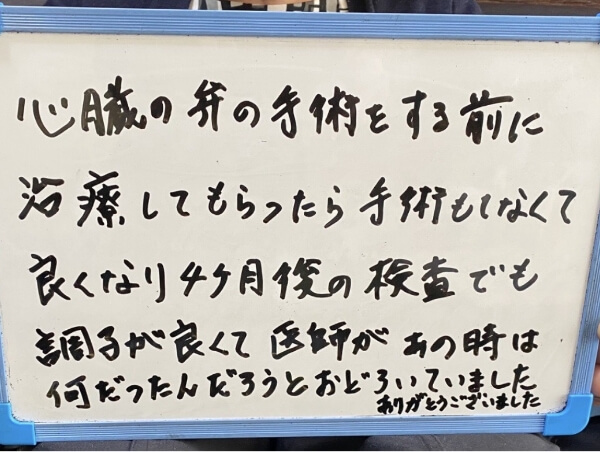 心臓の弁の手術をする前に
治療してもらったら手術もしなくて
良くなり4ケ月後の検査でも
調子が良くて医師があの時は
何だったんだろうとおどろいていました
ありがとうございました